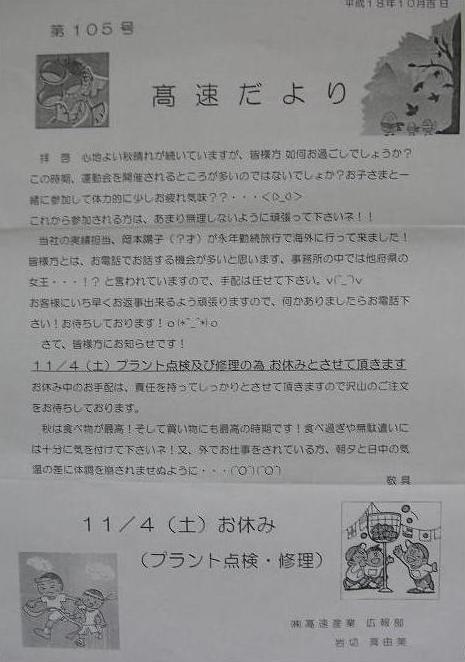 平成18年10月吉日
第105号
高速だより
拝啓 心地よい秋晴れが続いていますが、皆様方 如何お過ごしでしょうか?
この時期、運動会を開催されるところが多いのではないでしょうか?お子さまと一
緒に参加して体力的に少しお疲れ気味??・・・<(>_<)>
これから参加される方は、あまり無理しないように頑張って下さいネ!!
当社の実績担当、岡本陽子(?才)が永年勤続旅行で海外に行って来ました!
皆様方とは、お電話でお話する機会が多いと思います、事務所の中では他府県の
女王・・・!?と言われていますので、手配は任せて下さい。v(^_^)v
お客様にいち早くお返事出来るよう頑張りますので、何かありましたらお電話下
さい!お待ちしております!o(*^_^*)o
さて、皆様方にお知らせです!
11/4(土)プラント点検及び修理の為 お休みとさせて頂きます
お休み中のお手配は、責任を持ってしっかりとさせて頂きますので沢山のご注文
をお待ちしております。
秋は食べ物が最高!そして買い物にも最高の時期です!食べ過ぎや無駄遣いに
は十分に気を付けて下さいネ!又、外でお仕事をされている方、朝夕と日中の気
温の差に体調を崩されませぬように・・・(^O^)(^O^)
敬具
11/4(土)お休み
(プラント点検・修理)
㈱高速産業 広報部
岩切 真由美